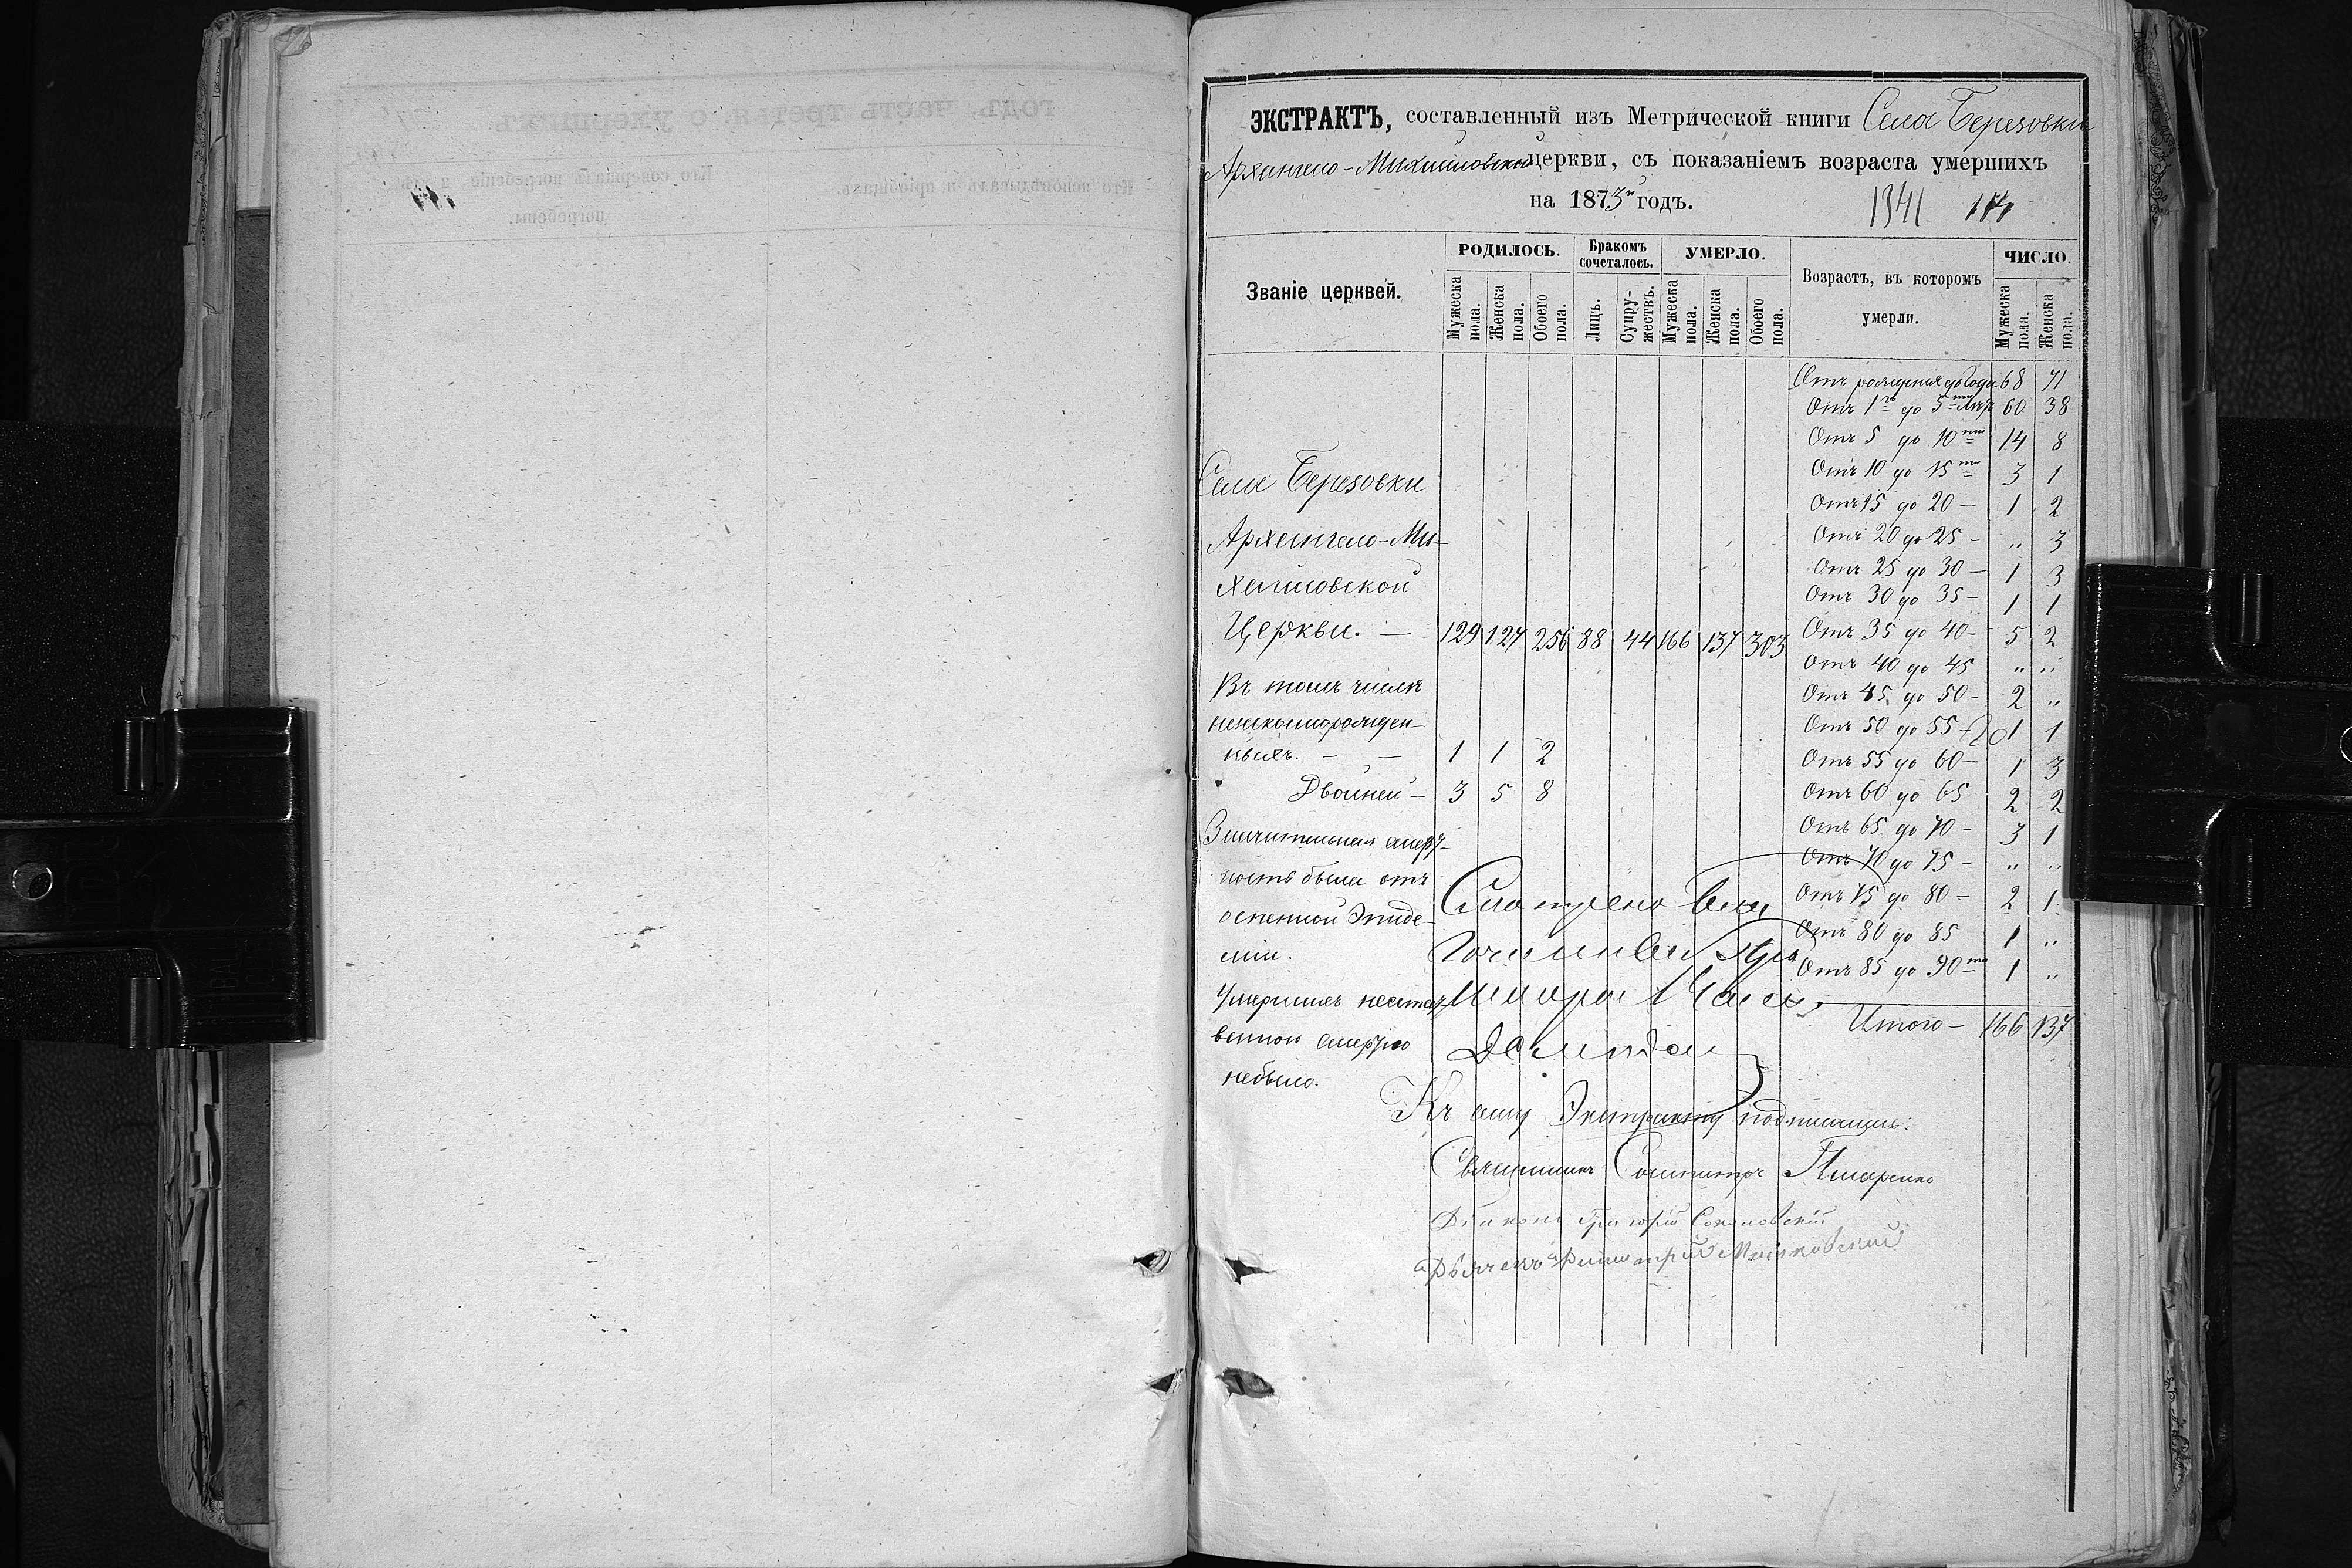 ЭКСТРАКТЪ, составленный изъ Метрической книги Села Березовки
Архангело-Михайловской церкви, съ показаніемъ возраста умершихъ
на 1873й годъ.
1341
Званіе церквей.
РОДИЛОСЬ.
Бракомъ сочеталось.
УМЕРЛО.
Возрастъ, въ которомъ умерли.
ЧИСЛО.
Мужеска пола.
Женска пола.
Обоего пола.
Лицъ.
Супружествъ.
Мужеска пола.
Женска пола.
Обоего пола.
Мужеска пола.
Женска пола.
Отъ рожденія до года 68 71
Отъ 1го до 5ти лѣтъ 60 38
Отъ 5 до 10ти 14 8
Отъ 10 до 15ти 3 1
Отъ 15 до 20 – 1 2
Отъ 20 до 25 – „ 3
Отъ 25 до 30 – 1 3
Отъ 30 до 35 – 1 1
Отъ 35 до 40 – 5 2
Отъ 40 до 45 „ „
Отъ 45 до 50 – 2 „
Отъ 50 до 55 – 1 1
Отъ 55 до 60 – 1 3
Отъ 60 до 65 2 2
Отъ 65 до 70 – 3 1
Отъ 70 до 75 – „ „
Отъ 75 до 80 – 2 1
Отъ 80 до 85 1 „
Отъ 85 до 90ти 1 „
Итого – 166 137
Села Березовки
Архангело-Ми-
хайловской
Церкви. — 129 127 256 88 44 166 137 303
Въ томъ числѣ
незаконорожден-
ныхъ. — — 1 1 2
Двойней – 3 5 8
Значительная смерт-
ность была отъ
оспенной Эпиде-
міи.
Умершихъ неестест-
венною смертію
небыло.
Смотрено
Къ сему Экстракту подписались:
Священникъ
Діаконъ Григорій
Дьячекъ Димитрій